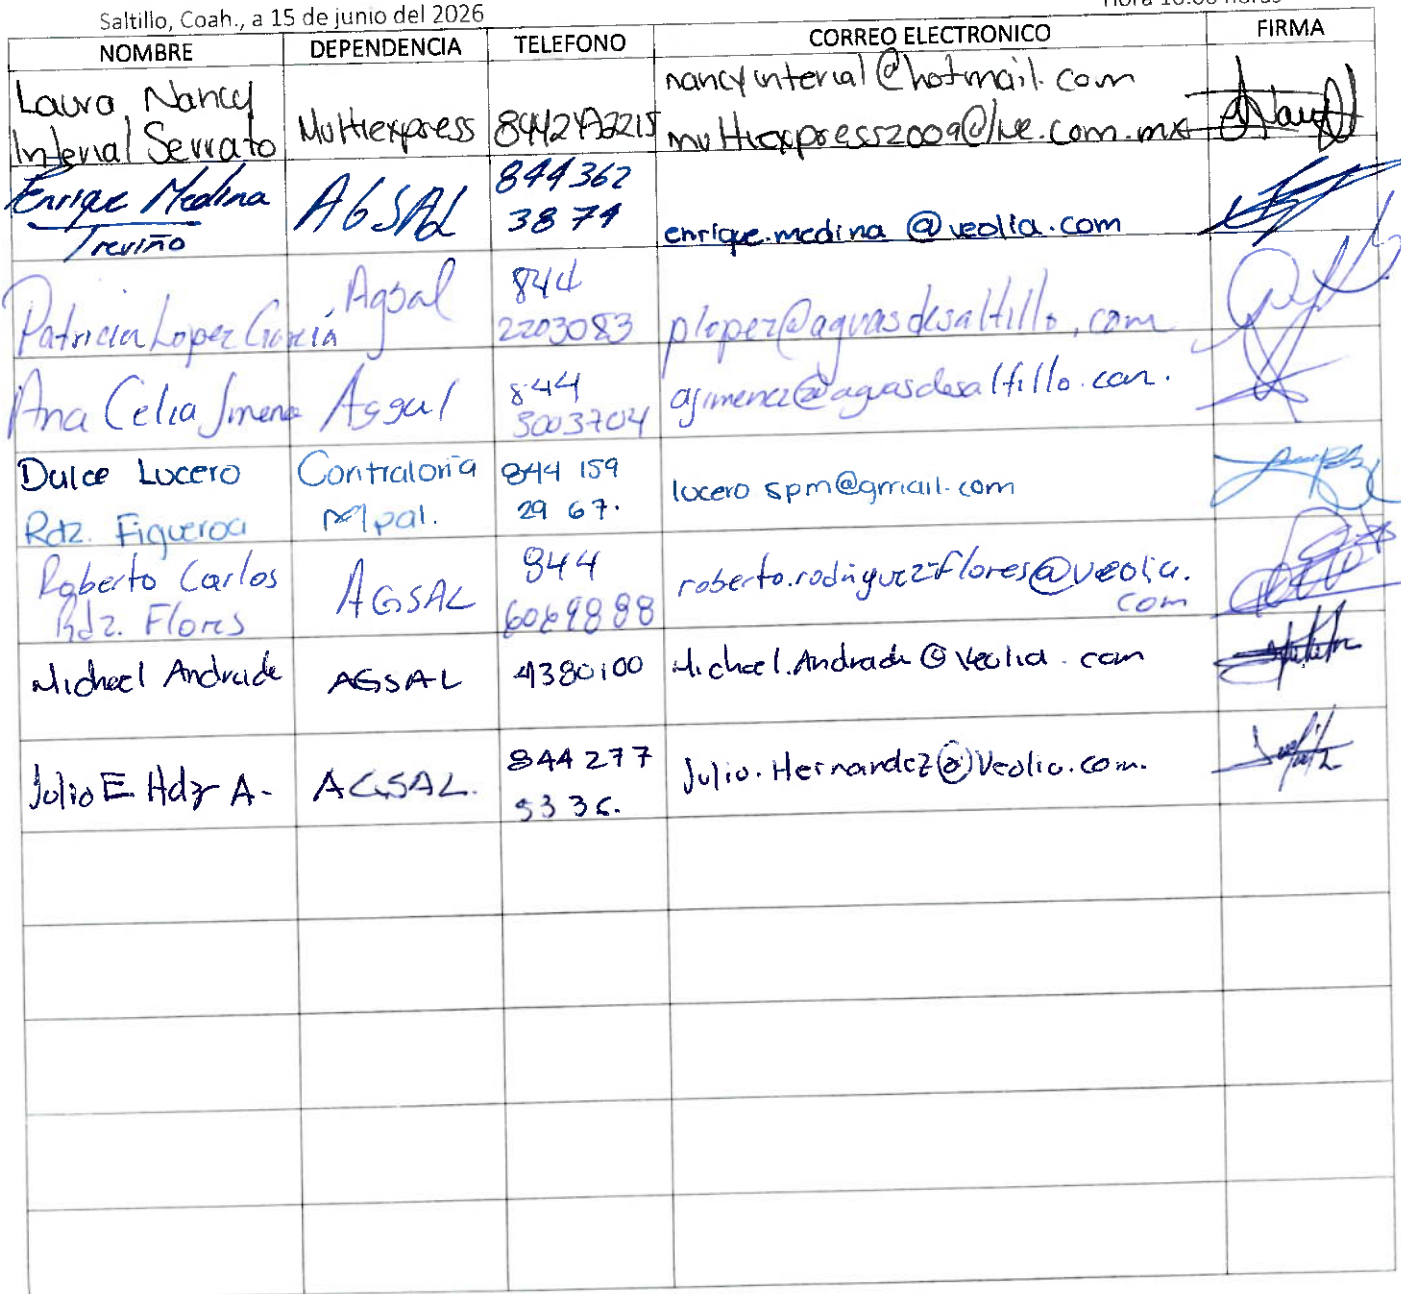 Saltillo, Coah., a 15 de junio del 2026
NOMBRE DEPENDENCIA TELEFONO CORREO ELECTRONICO FIRMA
Laura Nancy Interial Serrato Multiexpress nancyinterial@hotmail.com
multiexpress2009@live.com.mx
Enrique Medina Treviño AGSAL 844 362 38 74 enrique.medina@veolia.com
Patricia Lopez García Agsal 844 2203083 plopez@aguasdesaltillo.com
Ana Celia Jimenez Agsal 844 3003704 ajimenez@aguasdesaltillo.com.
Dulce Lucero Rdz. Figueroa Contraloría Mpal. 844 159 29 67. lucero spm@gmail.com
Roberto Carlos Rdz. Flores AGSAL 844 roberto.rodriguezflores@veolia.com
Michael Andrade AGSAL 4380100 Michael.Andrade@Veolia.com
Julio E Hdz A. AGSAL. 844 277 5336. Julio.Hernandez@Veolia.com.